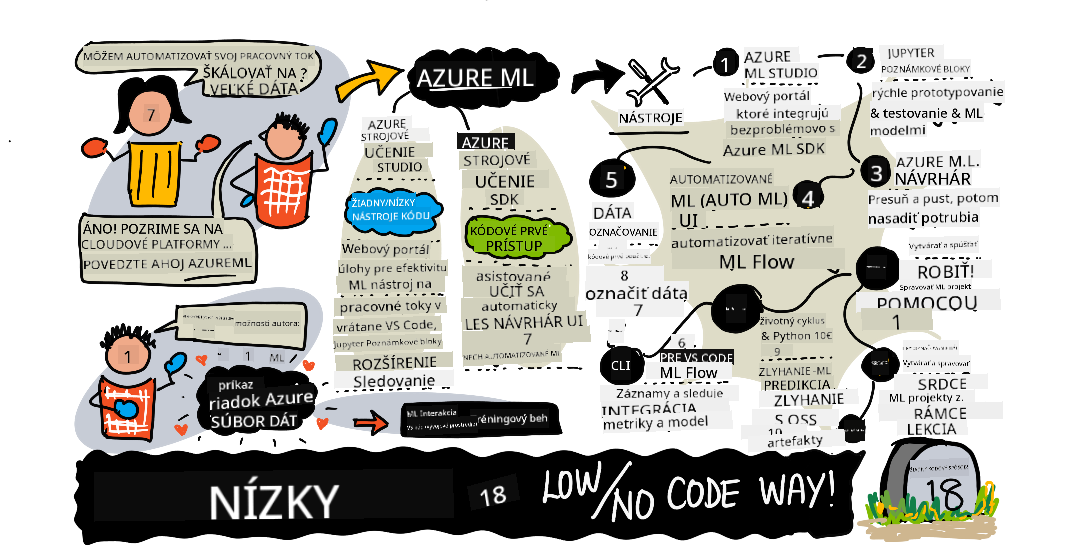 MÔŽEM AUTOMATIZOVAŤ SVOJ PRACOVNÝ TOK
ŠKÁLOVAŤ NA ?
VEĽKÉ DÁTA
7
ÁNO! POZRIME SA NA
CLOUDOVÉ PLATFORMY ...
POVEDZTE AHOJ AZUREML
možnosti autora:
1 ML /
1
príkaz
riadok Azure
SÚBOR DÁT
AZURE ML
AZURE
STROJOVÉ
UČENIE
STUDIO
ŽIADNY/NÍZKY
NÁSTROJE KÓDU
Webový portál
úlohy pre efektivitu
ML nástroj na
pracovné toky v
vrátane VS Code,
Jupyter Poznámkové bloky
ROZŠÍRENIE
Sledovanie
AZURE
STROJOVÉ
UČENIE
SDK
KÓDOVÉ PRVÉ
PRÍSTUP
asistované
UČIŤ SA
automaticky
LES NÁVRHÁR UI
7
NECH AUTOMATIZOVANÉ ML
ML Interakcia
réningový beh
NÁSTROJE
1
AZURE
ML STUDIO
Webový portál
ktoré integrujú
bezproblémovo s
Azure ML SDK
2
JUPYTER
POZNÁMKOVÉ BLOKY
rýchle prototypovanie
& testovanie & ML
modelmi
3
AZURE M.L.
NÁVRHÁR
Presuň a pust, potom
nasadiť potrubia
AUTOMATIZOVANÉ
ML (AUTO ML)
4
UI
automatizovať iteratívne
ML Flow
5
DÁTA
OZNAČOVANIE
8
označiť dáta
7
6
CLI
PRE VS CODE
ML Flow
Záznamy a sleduje
INTEGRÁCIA
metriky a model
životný cyklus
& Python 10€
9
ZLYHANIE-ML
PREDIKCIA
ZLYHANIE
S OSS
10
artefakty
Vytvárať a spúšťať
ROBIŤ!
Spravovať ML projekt
POMOCOU
1
Vytvárať a spravovať
SRDCE
ML projekty z.
RÁMCE
LEKCIA
NÍZKY
18
LOW/NO CODE WAY!
18